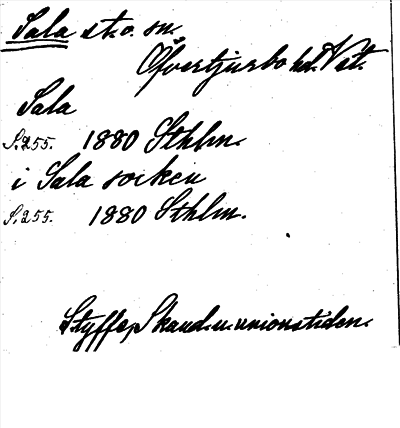 Sala st. o. sn.
Öfvertjurbo hd. Vstm.
Sala
S. 255. 1880 Sthlm.
i Sala socken
S. 255. 1880 Sthlm.
Styffe, Skand. u. unionstiden.